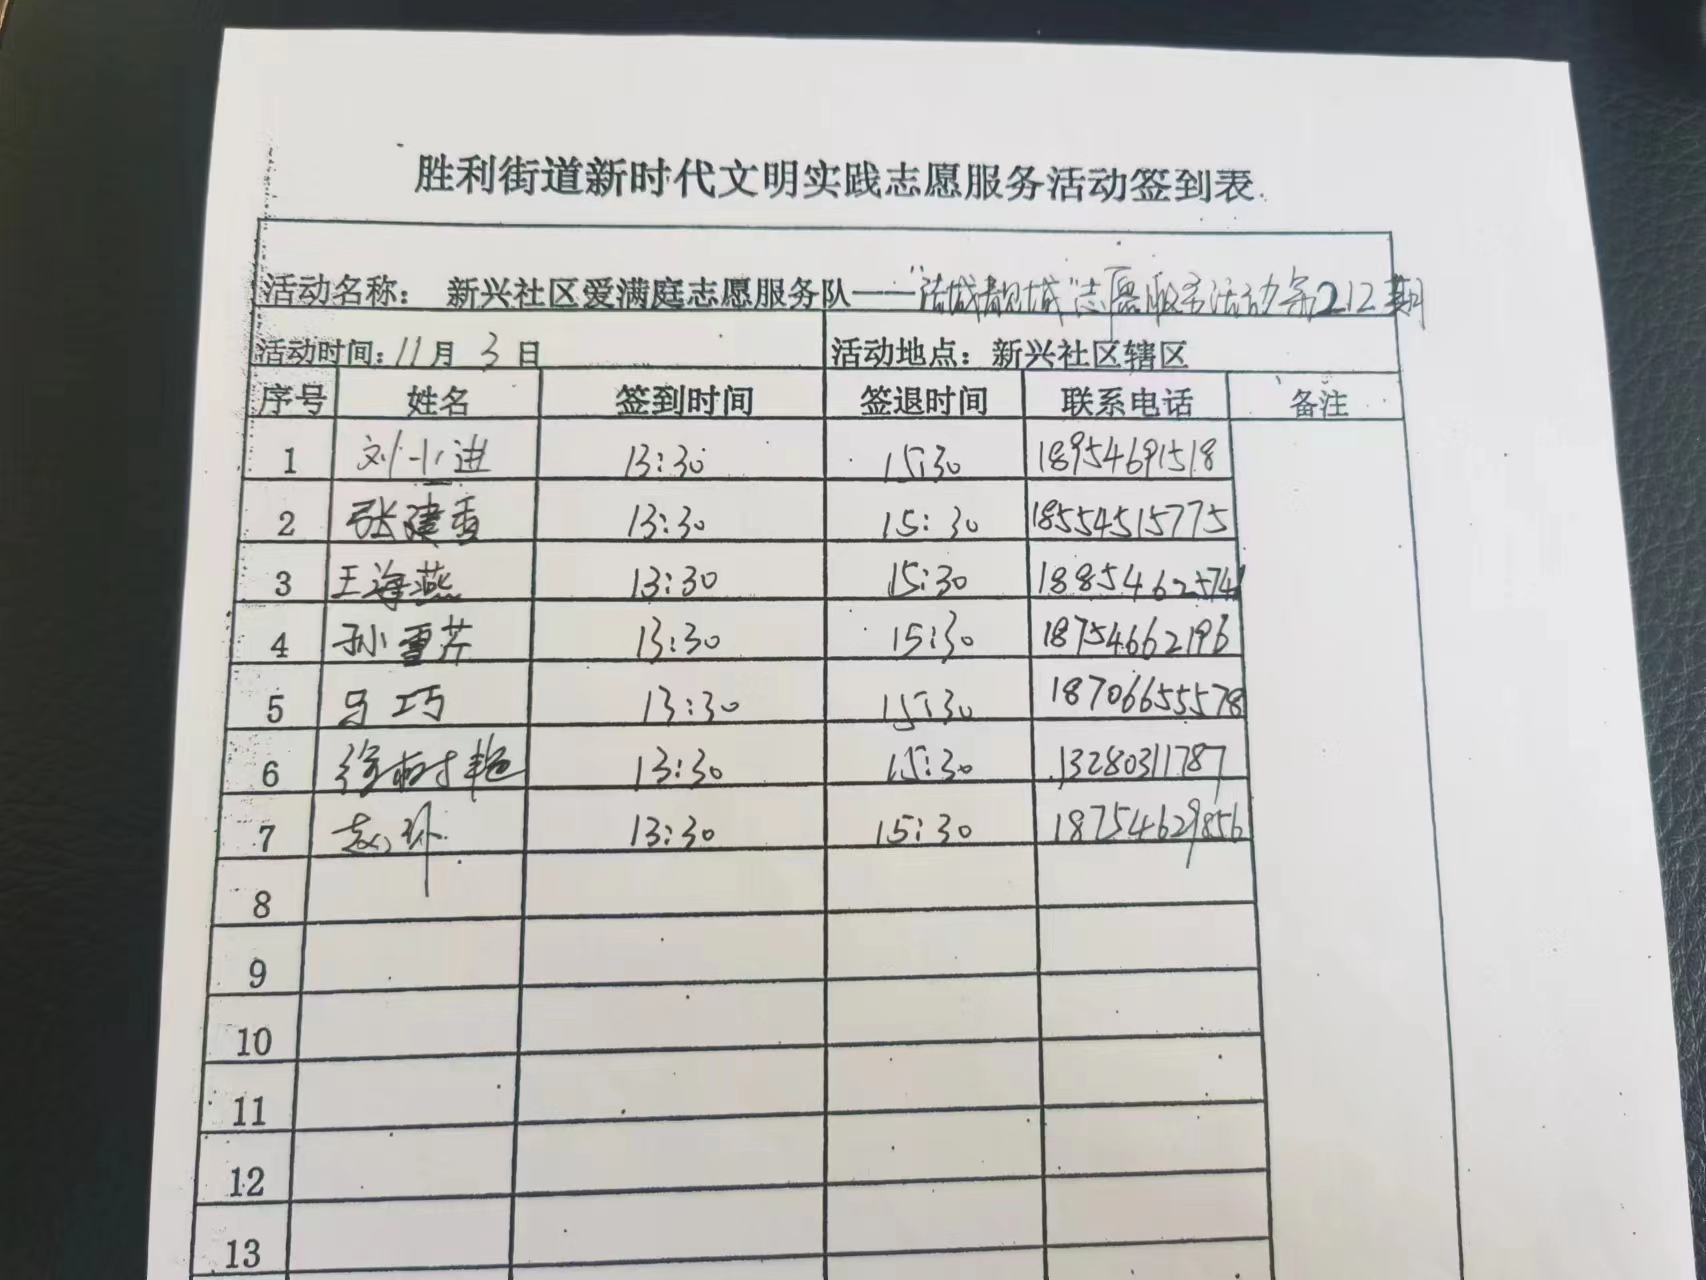 胜利街道新时代文明实践志愿服务活动签到表
活动名称： 新兴社区爱满庭志愿服务队——“洁城靓城”志愿服务活动第212期
活动时间：11月 3 日 活动地点：新兴社区辖区
序号 姓名 签到时间 签退时间 联系电话 备注
1 刘小进 13:30 15:30 18954691518
2 张建香 13:30 15:30 18554515775
3 王海燕 13:30 15:30
4 孙雪芹 13:30 15:30 18754662196
5 马巧 13:30 15:30 18706655578
6 徐树艳 13:30 15:30 13280311787
7 赵环 13:30 15:30 18754629856
8
9
10
11
12
13